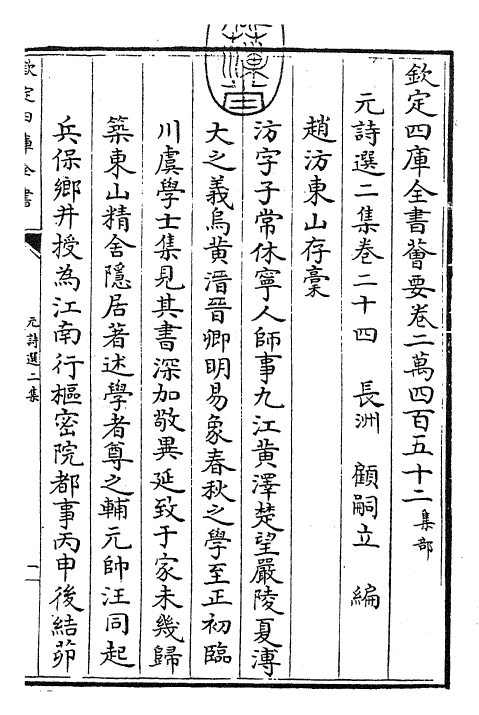 欽定四庫全書薈要卷二萬四百五十二 集部
元詩選二集卷二十四 長洲 顧嗣立 編
趙汸東山存稾
汸字子常休寧人師事九江黄澤楚望嚴陵夏溥
大之義烏黄溍晉卿明易象春秋之學至正初臨
川虞學士集見其書深加敬異延致于家未幾歸
築東山精舍隱居著述學者尊之輔元帥汪同起
兵保鄉井授為江南行樞密院都事丙申後結茆
欽定四庫全書
元詩選二集
一